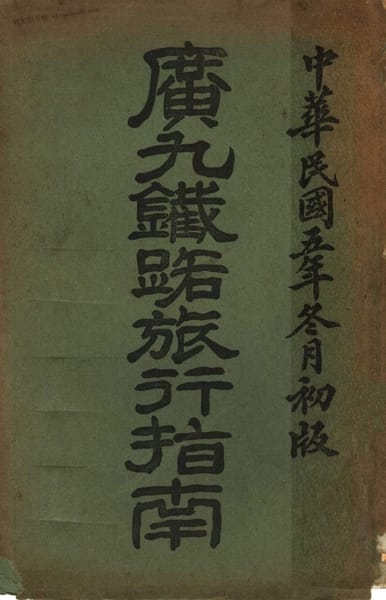 中華民國五年冬月初版
廣九鐵路旅行指南